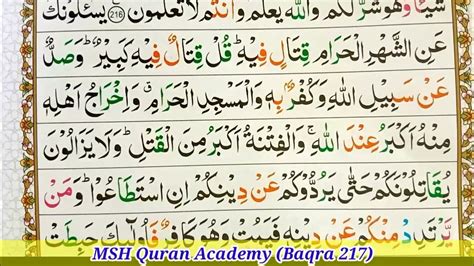 شَيْـًٔا وَّهُوَ شَرٌّ لَّكُمْ وَاللّٰهُ يَعْلَمُ وَاَنْتُمْ لَا تَعْلَمُوْنَ ۟ 216 يَسْـَٔلُوْنَكَ
عَنِ الشَّهْرِ الْحَرَامِ قِتَالٍ فِيْهِ ؕ قُلْ قِتَالٌ فِيْهِ كَبِيْرٌ ؕ وَصَدٌّ
عَنْ سَبِيْلِ اللّٰهِ وَكُفْرٌۢ بِهٖ وَالْمَسْجِدِ الْحَرَامِ ۗ وَاِخْرَاجُ اَهْلِهٖ
مِنْهُ اَكْبَرُ عِنْدَ اللّٰهِ ۚ وَالْفِتْنَةُ اَكْبَرُ مِنَ الْقَتْلِ ؕ وَلَا يَزَالُوْنَ
يُقَاتِلُوْنَكُمْ حَتّٰى يَرُدُّوْكُمْ عَنْ دِيْنِكُمْ اِنِ اسْتَطَاعُوْا ؕ وَمَنْ
يَّرْتَدِدْ مِنْكُمْ عَنْ دِيْنِهٖ فَيَمُتْ وَهُوَ كَافِرٌ فَاُولٰٓئِكَ حَبِطَتْ
MSH Quran Academy (Baqra 217)